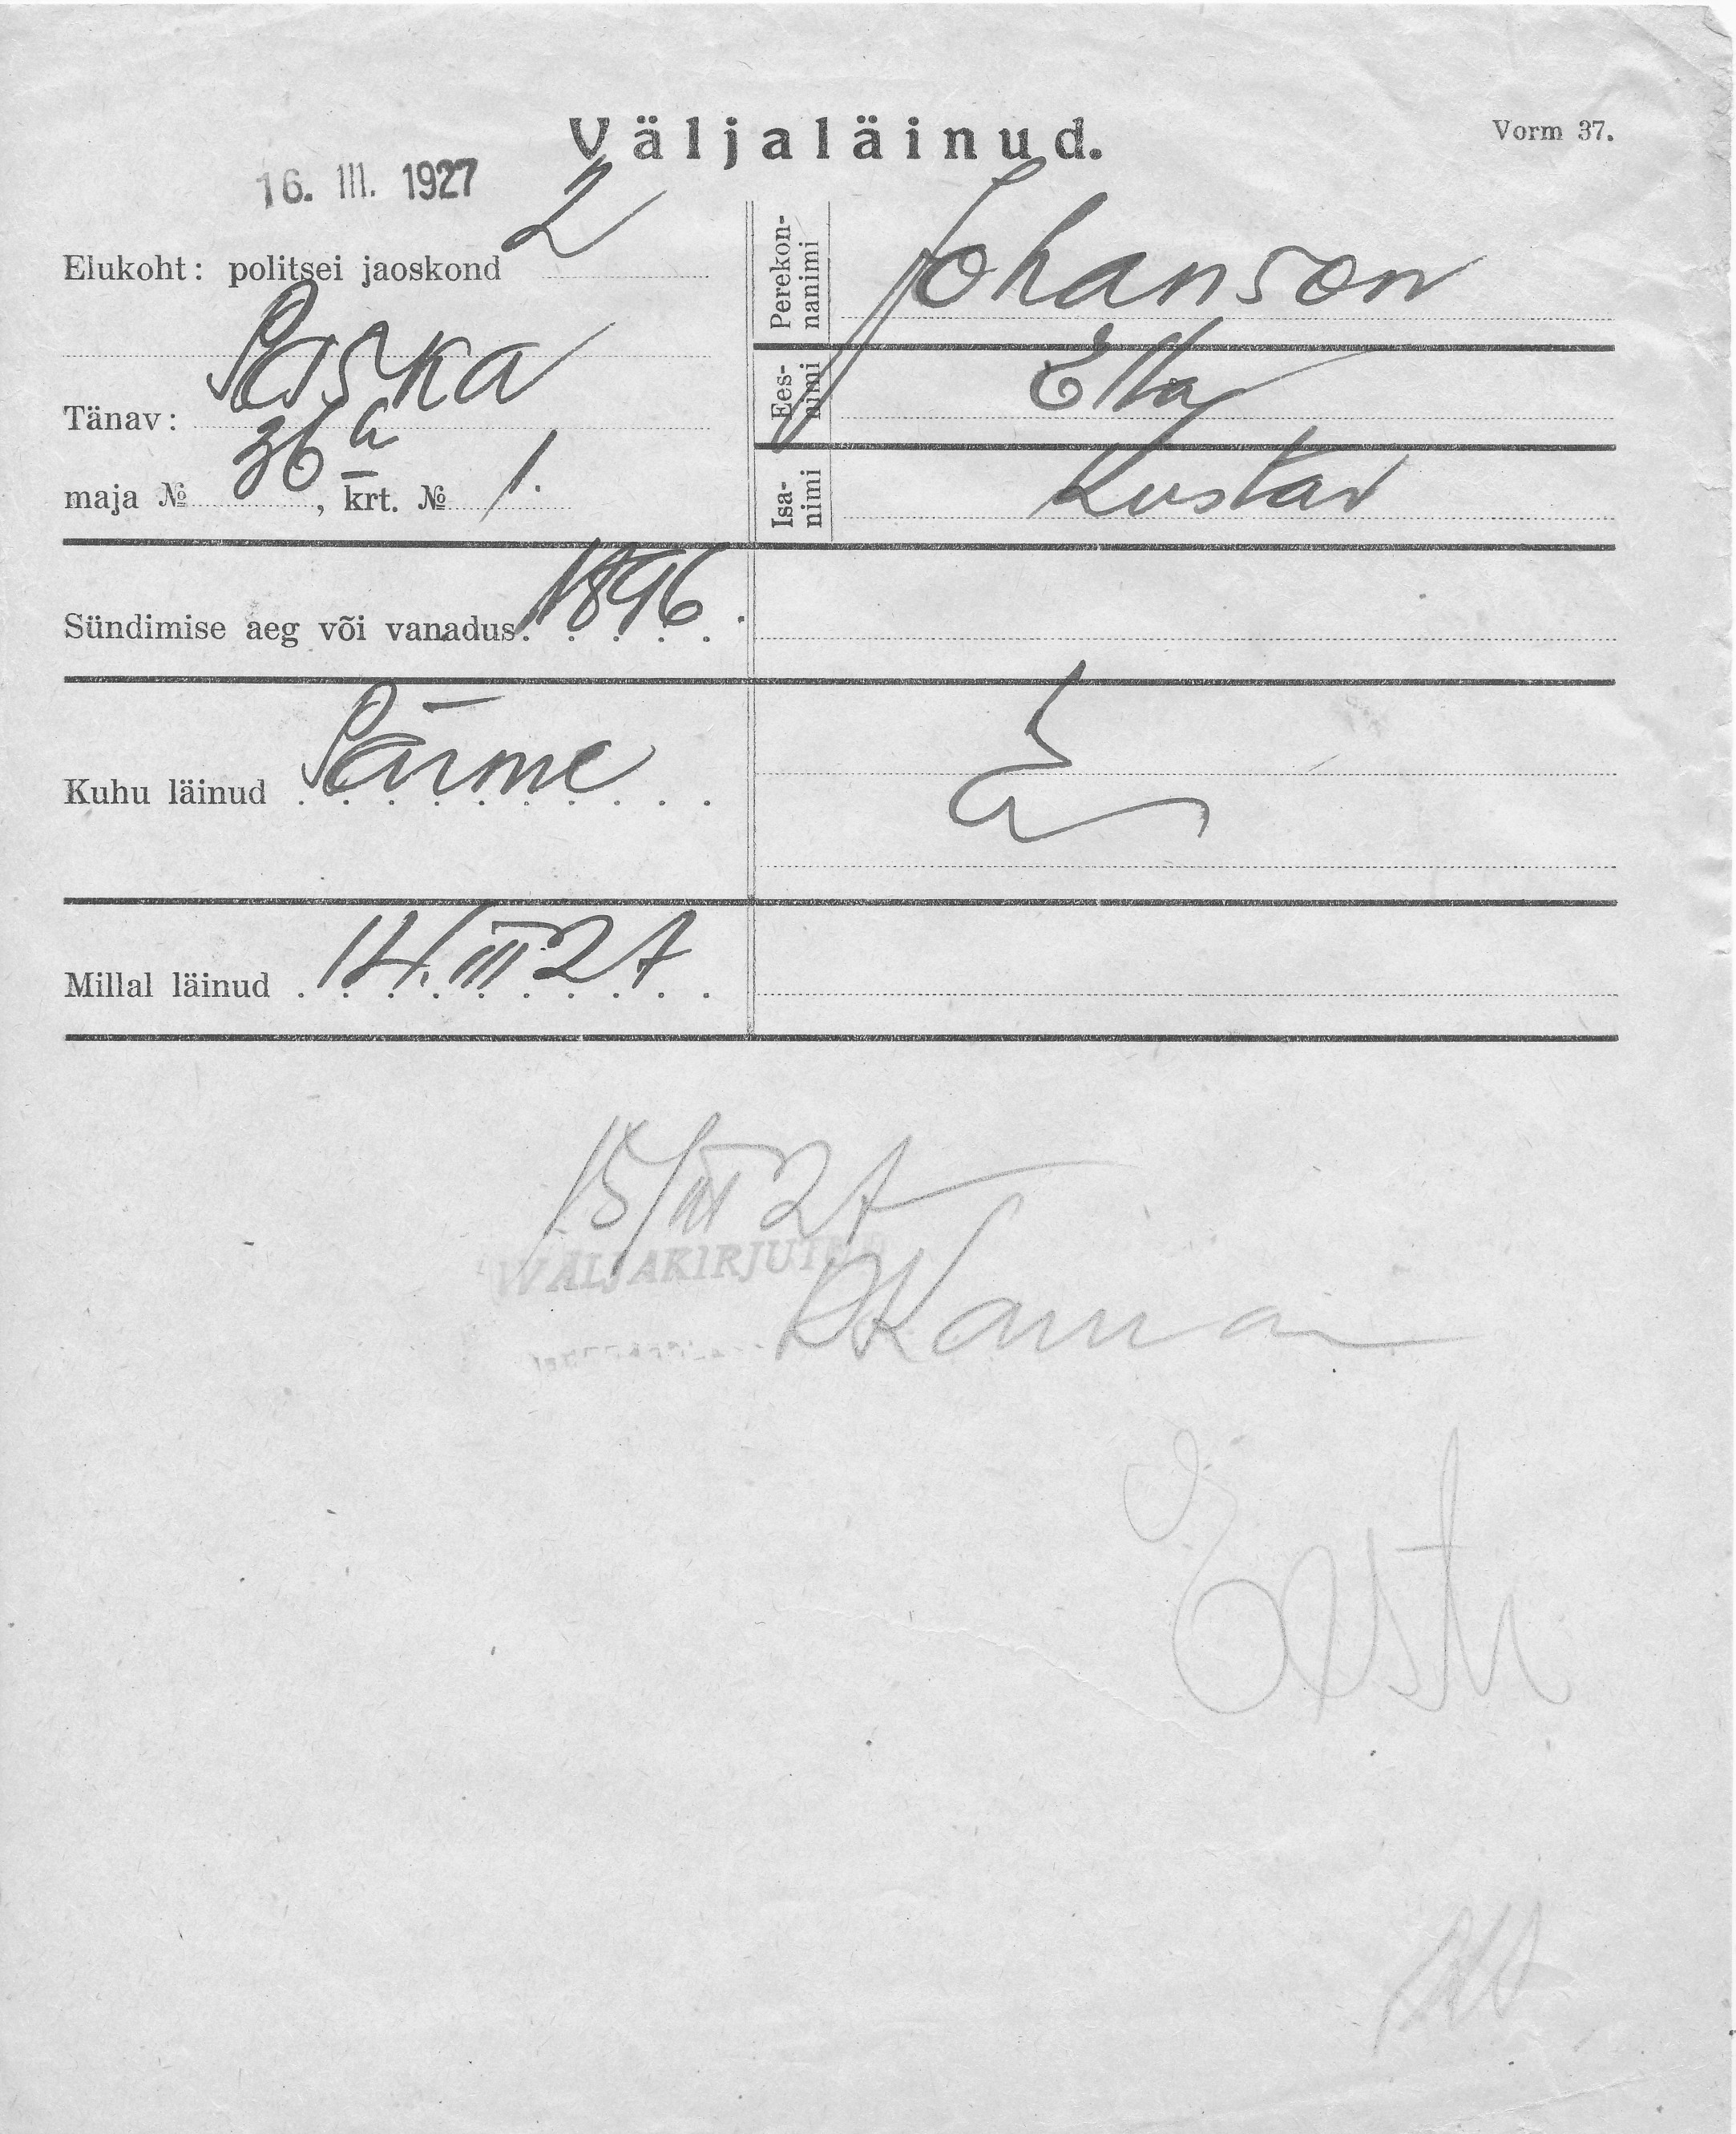 Väljaläinud.
Vorm 37.
16. III. 1927
Elukoht: politsei jaoskond 2
Tänav: Paska
maja № 36a, krt. № 1.
Perekon-
nanimi Johanson
Ees-
nimi Ella
Isa-
nimi Kustav
Sündimise aeg või vanadus 1896.
Kuhu läinud Pärnu
Millal läinud 14. III 27
15/III 27
WÄLJAKIRJUT
Eesti